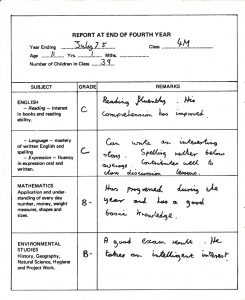 REPORT AT END OF FOURTH YEAR
Year Ending July 75 Class 4M
Age 11 Yrs. 1 Mths.
Number of Children in Class 39
SUBJECT GRADE REMARKS
ENGLISH
– Reading – interest
in books and reading
ability.
C
Reading fluently. His
comprehension has improved
– Language – mastery
of written English and
spelling
– Expression – fluency
in expression oral and
written.
C
Can write an interesting
story. Spelling rather below
average. Contributes well to
class discussion lessons.
MATHEMATICS
Application and under-
standing of every day
number, money, weight
measures, shapes and
sizes.
B-
Has progressed during the
year and has a good
basic knowledge.
ENVIRONMENTAL
STUDIES
History, Geography,
Natural Science, Hygiene
and Project Work.
B-
A good exam result. He
takes an intelligent interest.